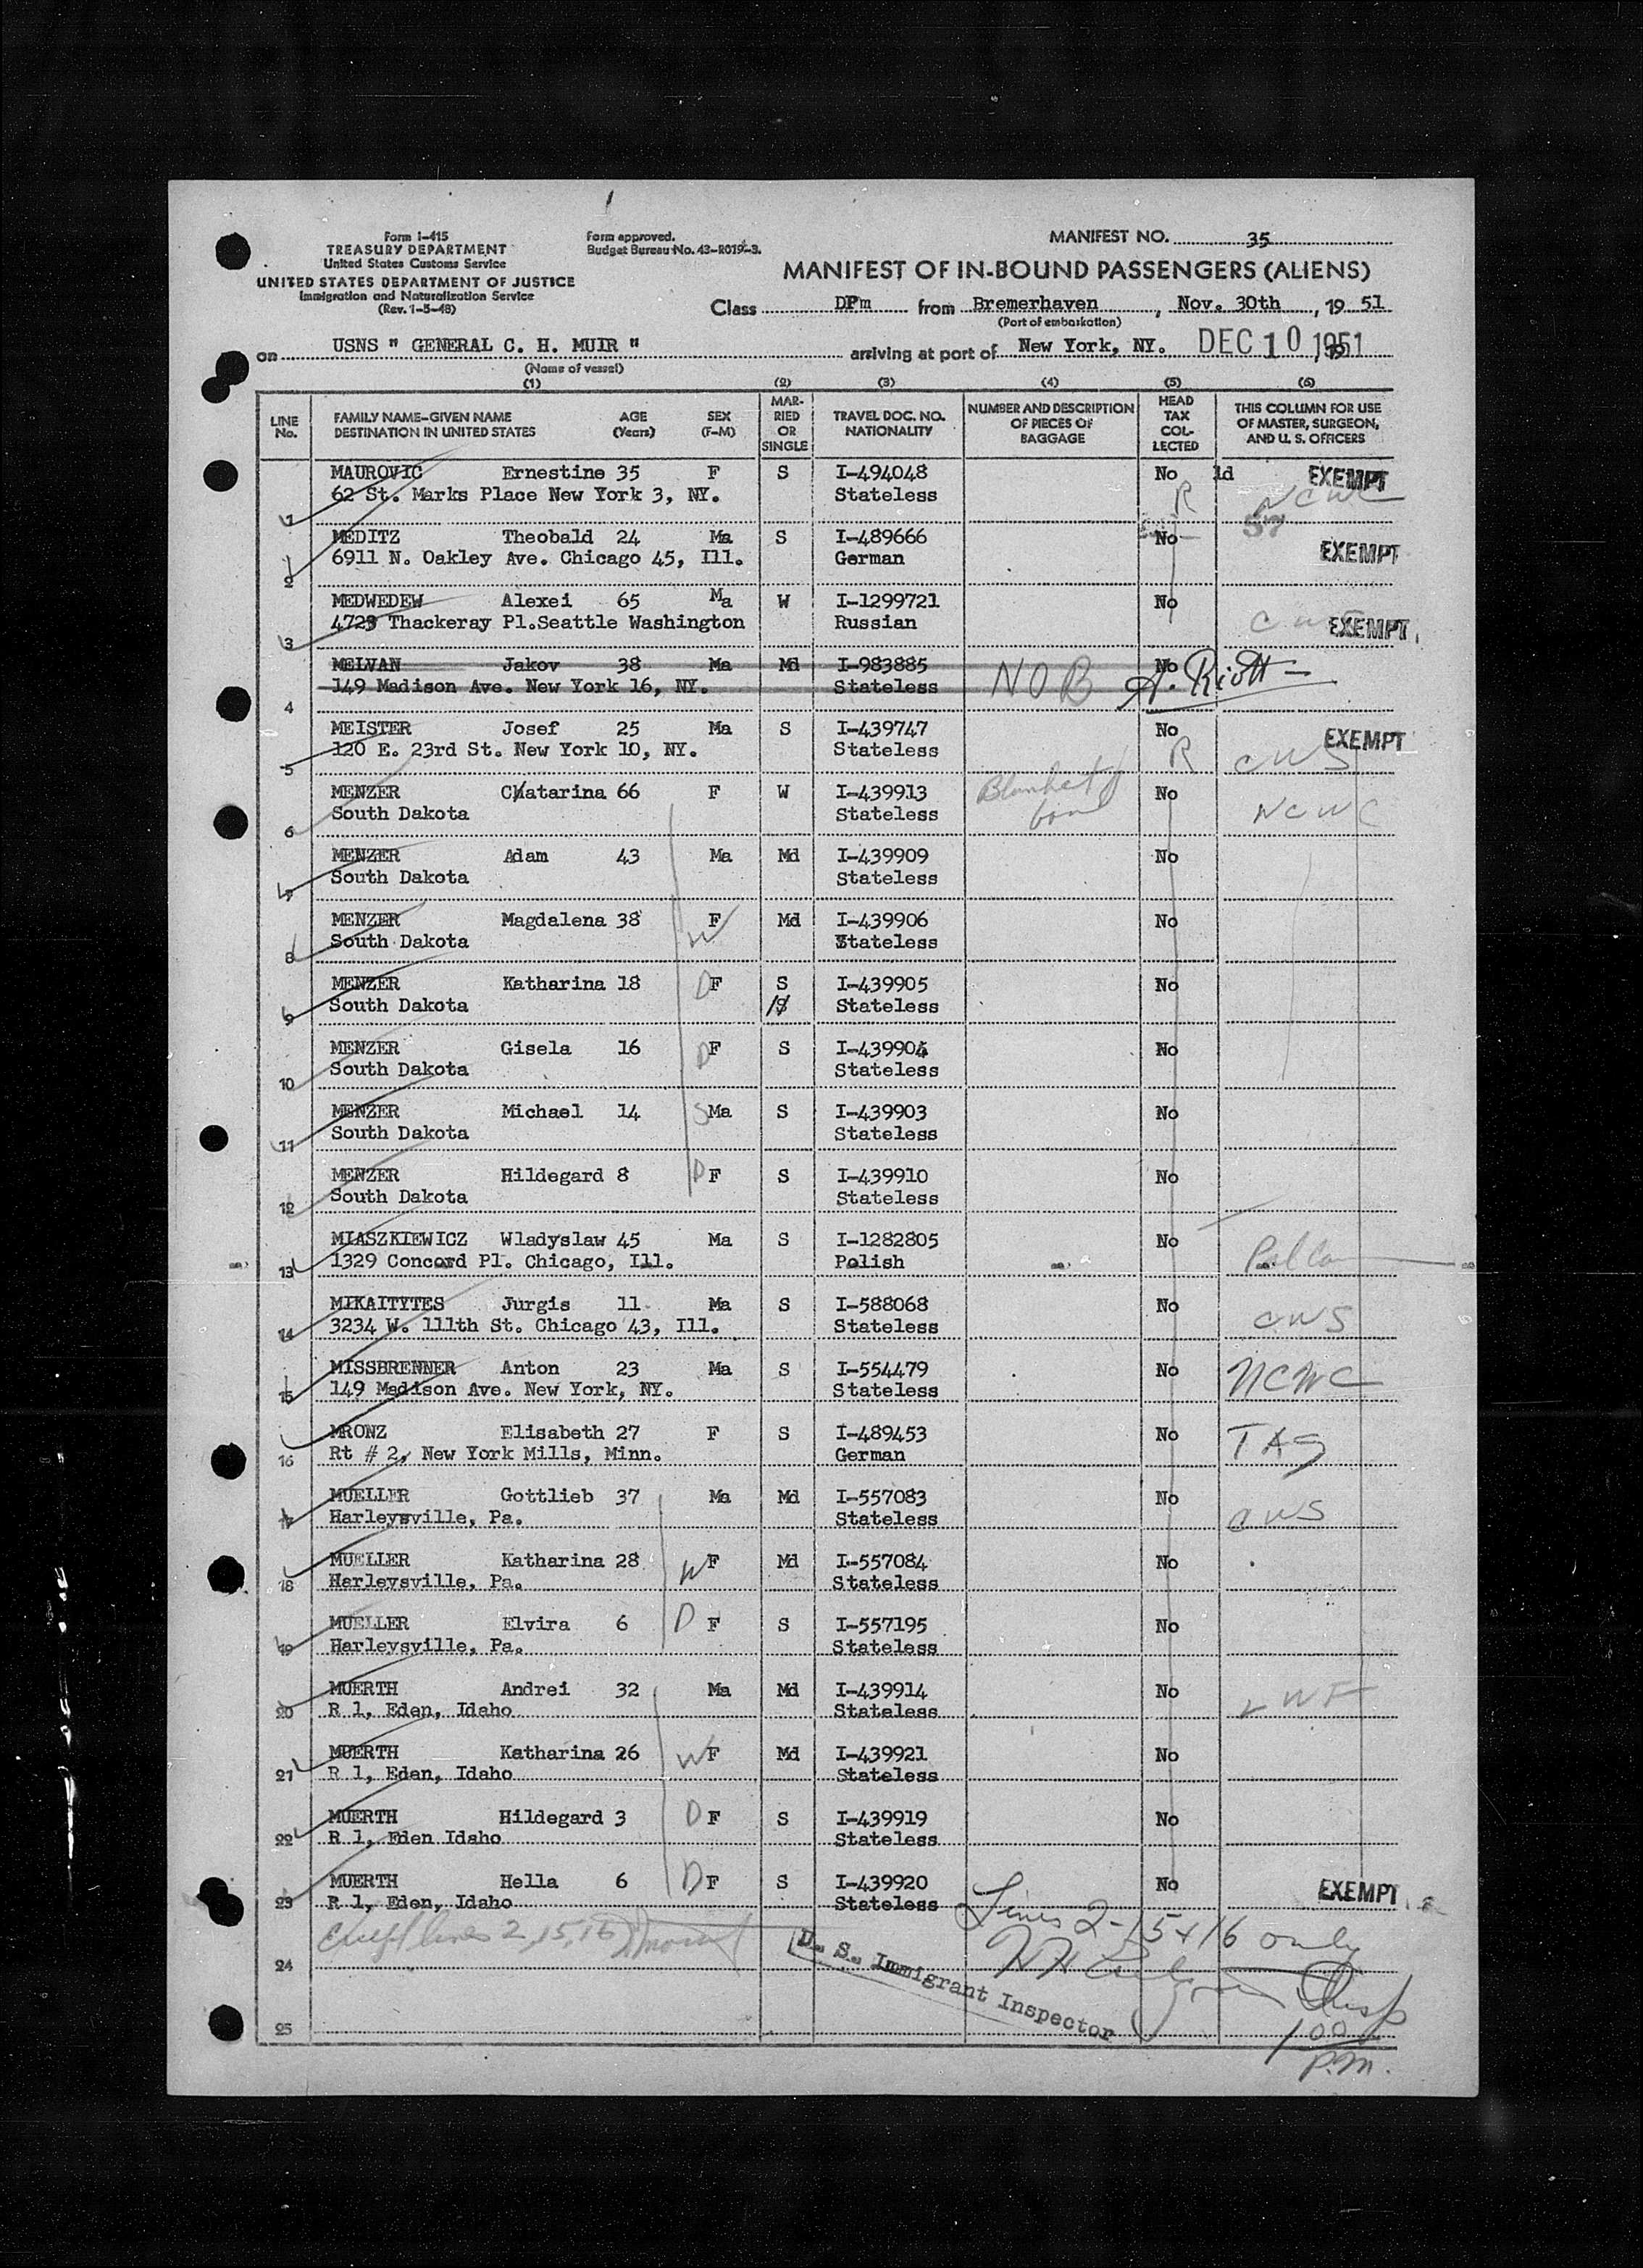 Form I-415
TREASURY DEPARTMENT
United States Customs Service
UNITED STATES DEPARTMENT OF JUSTICE
Immigration and Naturalization Service
(Rev. 1-5-48)
Form approved.
Budget Bureau No. 43-R019-3.
MANIFEST NO. 35
MANIFEST OF IN-BOUND PASSENGERS (ALIENS)
Class DPm from Bremerhaven, Nov. 30th, 19 51
(Port of embarkation)
on USNS " GENERAL C. H. MUIR " arriving at port of New York, NY. DEC 10 1951
(Name of vessel)
(1) (2) (3) (4) (5) (6)
LINE No. FAMILY NAME-GIVEN NAME DESTINATION IN UNITED STATES AGE (Years) SEX (F-M) MARRIED OR SINGLE TRAVEL DOC. NO. NATIONALITY NUMBER AND DESCRIPTION OF PIECES OF BAGGAGE HEAD TAX COLLECTED THIS COLUMN FOR USE OF MASTER, SURGEON, AND U. S. OFFICERS
MAUROVIC Ernestine 35 F S I-494048 No ld EXEMPT
1 62 St. Marks Place New York 3, NY. Stateless R NCWC
MEDITZ Theobald 24 Ma S I-489666 No 57
2 6911 N. Oakley Ave. Chicago 45, Ill. German EXEMPT
MEDWEDEW Alexei 65 Ma W I-1299721 No
3 4723 Thackeray Pl.Seattle Washington Russian EXEMPT
MELVAN Jakov 38 Ma Md I-983885 NOB No
4 149 Madison Ave. New York 16, NY. Stateless
MEISTER Josef 25 Ma S I-439747 No EXEMPT
5 120 E. 23rd St. New York 10, NY. Stateless R CWS
MENZER Chatarina 66 F W I-439913 Blanket No
6 South Dakota Stateless bond NCWC
MENZER Adam 43 Ma Md I-439909 No
7 South Dakota Stateless
MENZER Magdalena 38 F Md I-439906 No
8 South Dakota W Stateless
MENZER Katharina 18 D F S I-439905 No
9 South Dakota Stateless
MENZER Gisela 16 D F S I-439904 No
10 South Dakota Stateless
MENZER Michael 14 S Ma S I-439903 No
11 South Dakota Stateless
MENZER Hildegard 8 D F S I-439910 No
12 South Dakota Stateless
MIASZKIEWICZ Wladyslaw 45 Ma S I-1282805 No
13 1329 Concord Pl. Chicago, Ill. Polish
MIKAITYTES Jurgis 11 Ma S I-588068 No CWS
14 3234 W. 111th St. Chicago 43, Ill. Stateless
MISSBRENNER Anton 23 Ma S I-554479 No NCWC
15 149 Madison Ave. New York, NY. Stateless
MRONZ Elisabeth 27 F S I-489453 No
16 Rt # 2, New York Mills, Minn. German
MUELLER Gottlieb 37 Ma Md I-557083 No CWS
17 Harleysville, Pa. Stateless
MUELLER Katharina 28 W F Md I-557084 No
18 Harleysville, Pa. Stateless
MUELLER Elvira 6 D F S I-557195 No
19 Harleysville, Pa. Stateless
MUERTH Andrei 32 Ma Md I-439914 No LWF
20 R 1, Eden, Idaho Stateless
MUERTH Katharina 26 W F Md I-439921 No
21 R 1, Eden, Idaho Stateless
MUERTH Hildegard 3 D F S I-439919 No
22 R 1, Eden Idaho Stateless
MUERTH Hella 6 D F S I-439920 No EXEMPT
23 R 1, Eden, Idaho Stateless
Lines 2-15+16 only
lines 2, 15, 16
24
U. S. Immigrant Inspector
25
100
P.M.